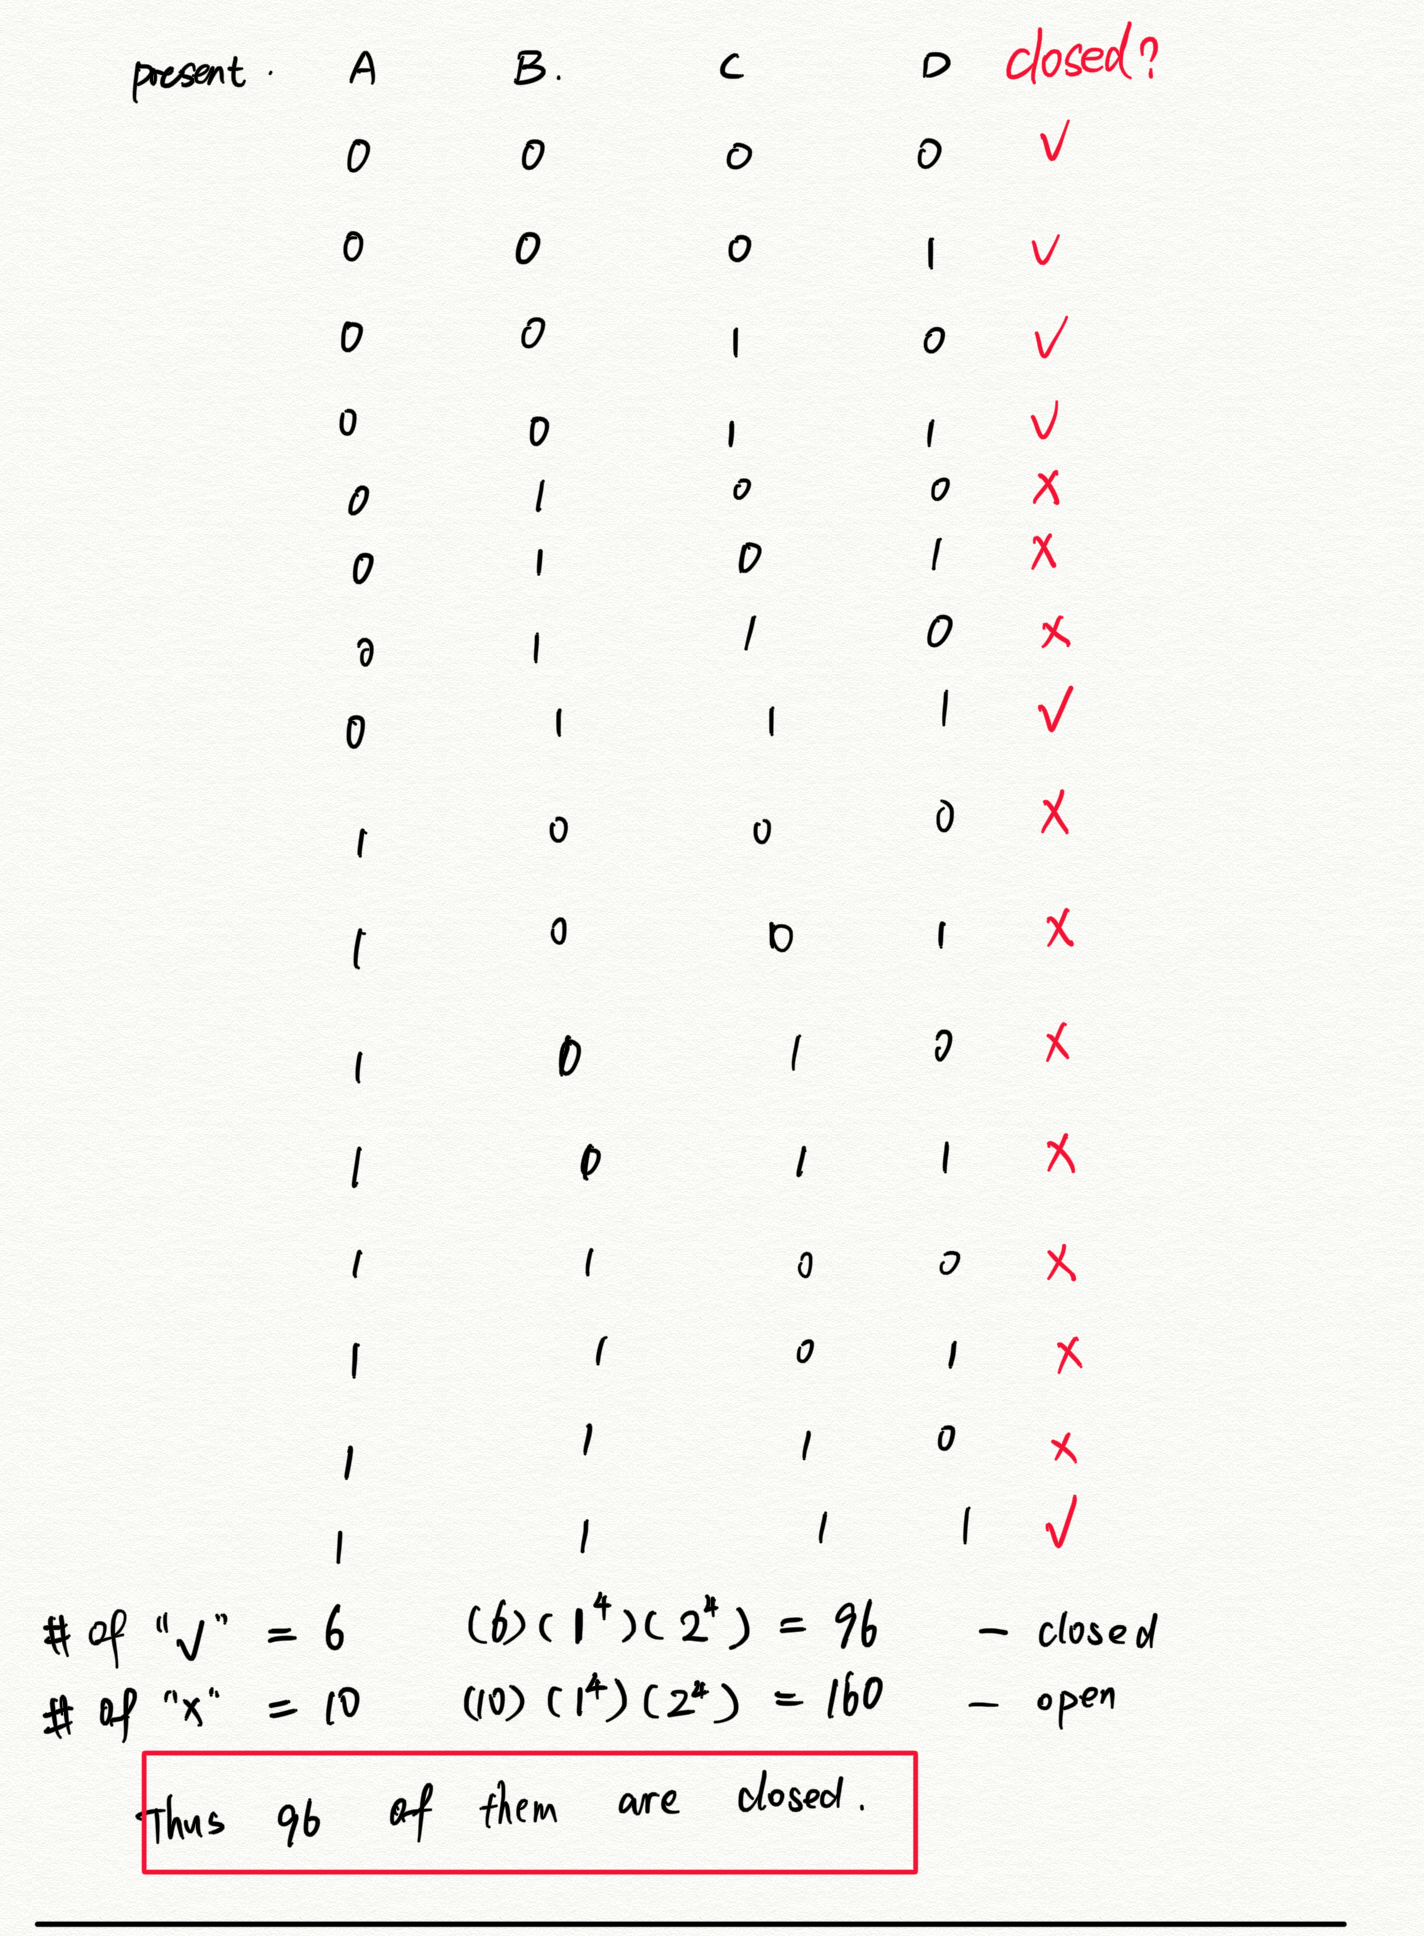 present . A B. C D closed?
0 0 0 0 ✓
0 0 0 1 ✓
0 0 1 0 ✓
0 0 1 1 ✓
0 1 0 0 ✗
0 1 0 1 ✗
0 1 1 0 ✗
0 1 1 1 ✓
1 0 0 0 ✗
1 0 0 1 ✗
1 0 1 0 ✗
1 0 1 1 ✗
1 1 0 0 ✗
1 1 0 1 ✗
1 1 1 0 ✗
1 1 1 1 ✓
# of "✓" = 6 (6)(1⁴)(2⁴) = 96 – closed
# of "x" = 10 (10)(1⁴)(2⁴) = 160 – open
Thus 96 of them are closed.